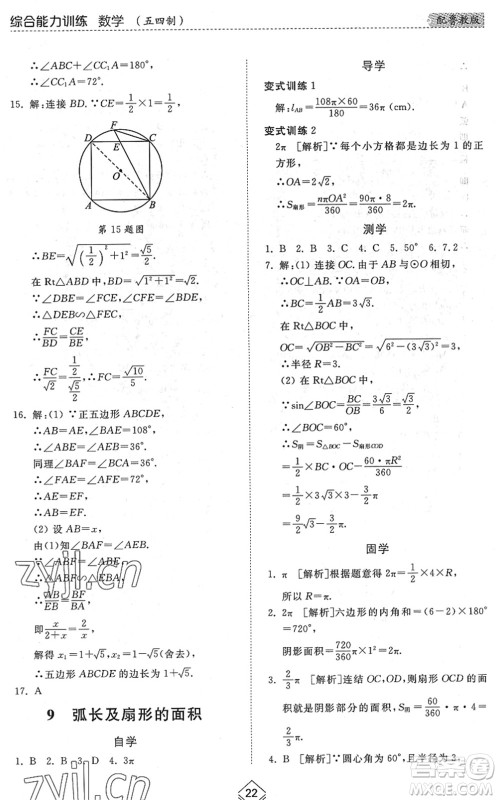 综合能力训练 数学 （五四制）
配鲁教版
∴∠ABC+∠CC₁A=180°.
∴∠CC₁A=72°.
15. 解:连接 BD. ∵CE=1/2×1=1/2,
F
D
C
E
O
A
B
第 15 题图
∴BE=√((1/2)²+1²)=√5/2.
在 Rt△ABD 中,BD=√(1²+1²)=√2.
∵∠DBE=∠FCE,∠DFC=∠EBC,
∴△DEB∽△FEC.
∴FC/BD=CE/BE.
∴FC/√2=(1/2)/(√5/2). ∴FC=√10/5.
16. 解:(1) ∵正五边形 ABCDE,
∴AB=AE,
∠BAE=108°.
同理∠BAF=∠ABF=36°.
∴∠FAE=∠AFE=72°.
∴AE=EF.
∴AB=EF.
(2) 设 AB=x,
由(1)知∠BAF=∠AEB,
∴△ABF∽△EBA.
∴AB/EB=BF/AB.
即x/(2+x)=2/x.
解得 x₁=1+√5,x₂=1-√5.
∴五边形 ABCDE 的边长为 1+√5.
17. A
9 弧长及扇形的面积
自学
1. B 2. B 3. D 4. D 5.
导学
变式训练 1
解:l_AB=(108π×60)/180=36π(cm).
变式训练 2
2π [解析]∵每个小方格都是边长为 1 的正
方形,
∴OA=2√2.
∴S扇形=nπOA²/360=(90π·8)/360=2π.
测学
1. B 2. B 3. C 4. C 5. 50° 6. 7.2
7. 解:(1) 连接 OC. 由于 AB 与⊙O 相切,
∴OC⊥AB. ∵OA=OB,
∴BC=1/2AB=3√3.
在 Rt△OBC 中,
OC=√(OB²-BC²)=√(6²-(3√3)²)=3.
∴半径 R=3.
(2) 在 Rt△OBC 中,
∵sin∠BOC=BC/OB=3√3/6=√3/2,
∴∠BOC=60°.
∴S阴=S△OBC-S扇形
=1/2×BC·OC-(60·πR²)/360
=9/2√3-3/2π.
固学
1. π [解析]根据题意得 2π=1/2×4×R,
所以 R=π.
2. 2π [解析]六边形的内角和=(6-2)×180°
=720°,
阴影面积=(720/360)π×1²=2π.
3. 2/3π [解析]连接 OC,OD,所以阴影的面
积就等于扇形 OCD 的面积=2/3π.
4. B [解析]∵圆心角为 60°,且半径为 3,
22
zyjl.cn
zyjl.cn